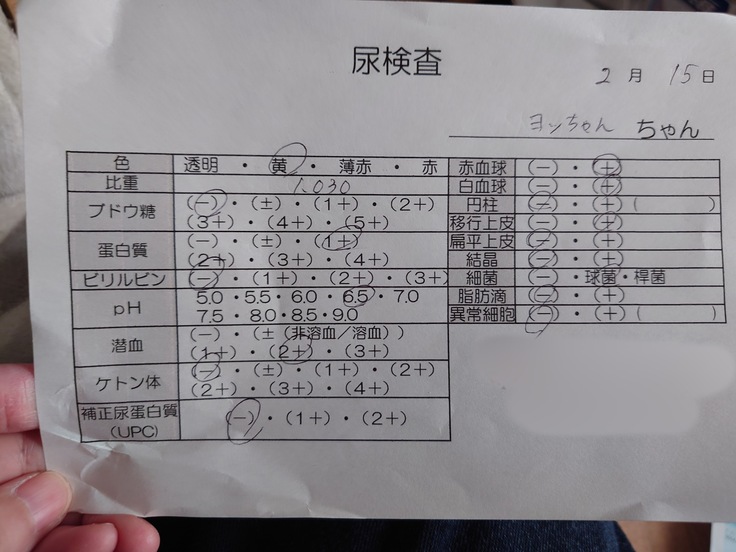 尿検査
2月 15日
ヨッちゃん ちゃん
色 透明 ・ 黄 ・ 薄赤 ・ 赤
比重 1.030
ブドウ糖 (−)・(±)・(1+)・(2+)
(3+)・(4+)・(5+)
蛋白質 (−)・(±)・(1+)
(2+)・(3+)・(4+)
ビリルビン (−)・(1+)・(2+)・(3+)
pH 5.0・5.5・6.0・6.5・7.0
7.5・8.0・8.5・9.0
潜血 (−)・(±(非溶血/溶血))
(1+)・(2+)・(3+)
ケトン体 (−)・(±)・(1+)・(2+)
(2+)・(3+)・(4+)
補正尿蛋白質
(UPC) (−)・(1+)・(2+)
赤血球 (−)・(+)
白血球 (−)・(+)
円柱 (−)・(+)( )
移行上皮 (−)・(+)
扁平上皮 (−)・(+)
結晶 (−)・(+)
細菌 (−)・球菌・桿菌
脂肪滴 (−)・(+)
異常細胞 (−)・(+)( )